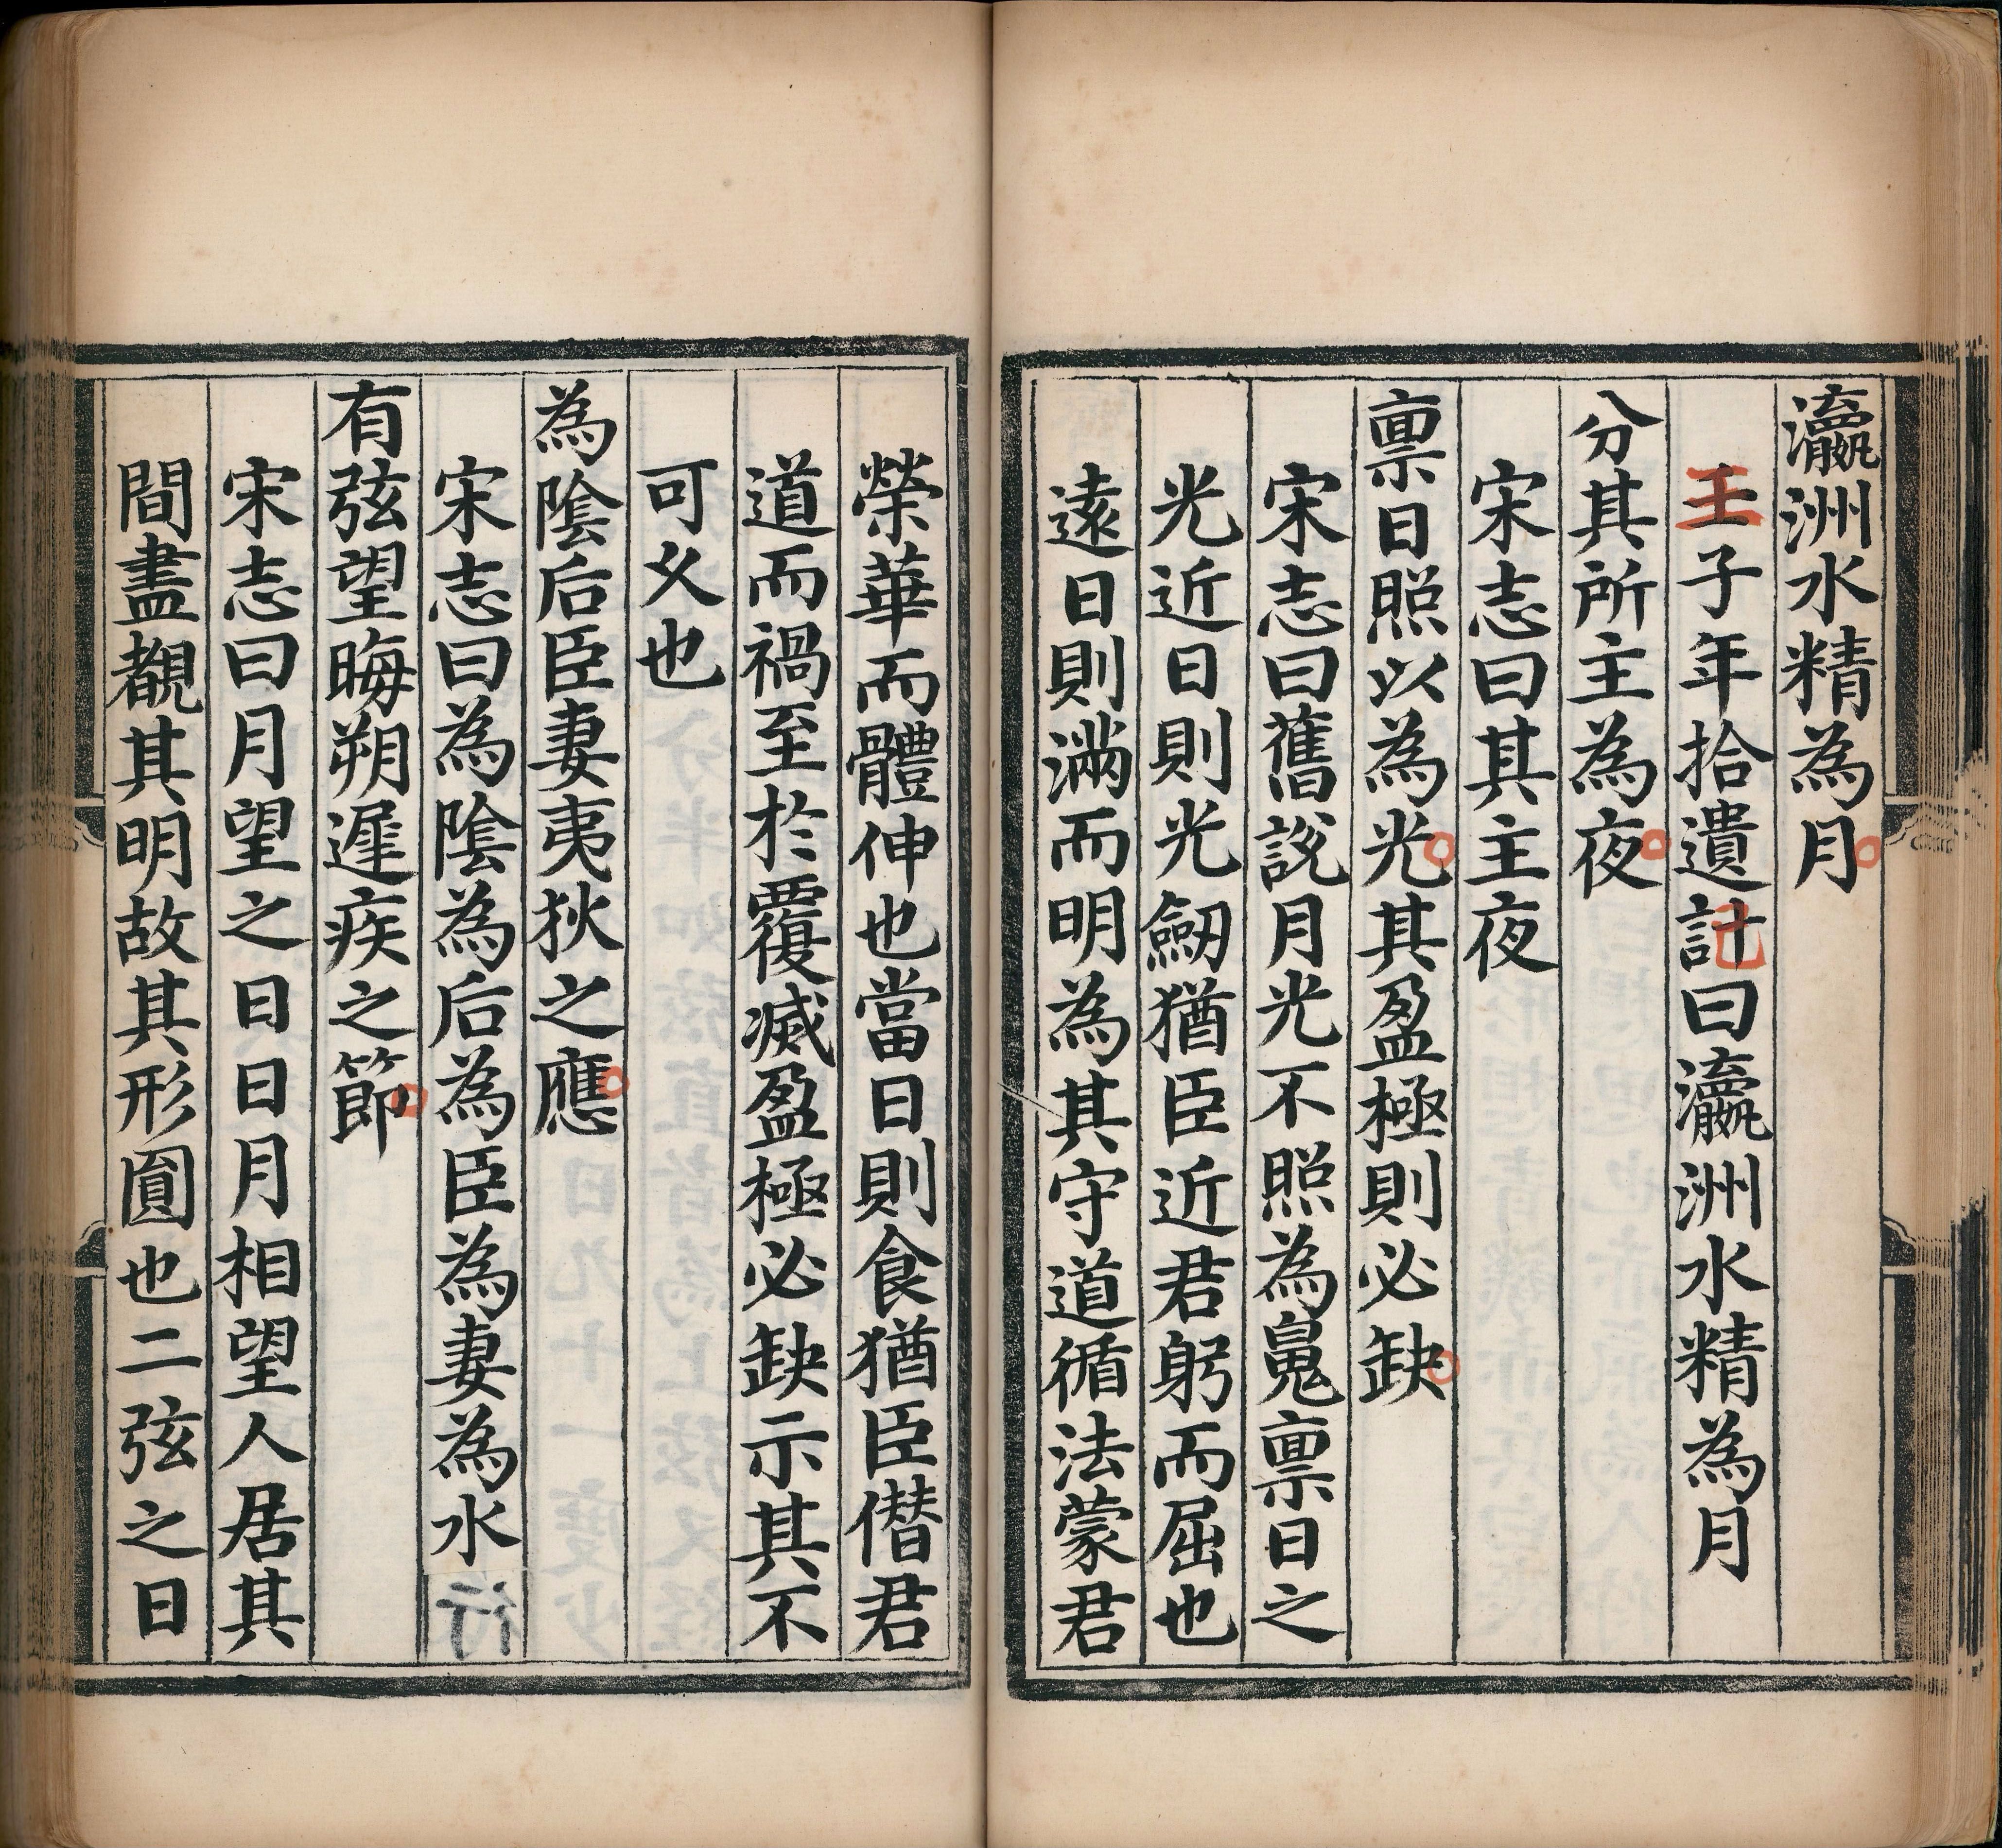 瀛洲水精為月
王子年拾遺記曰瀛洲水精為月
分其所主為夜
宋志曰其主夜
禀日照以為光其盈極則必缺
宋志曰舊説月光不照為䰟禀日之
光近日則光劒猶臣近君躬而屈也
遠日則滿而明為其守道循法蒙君
榮華而體伸也當日則食猶臣僣君
道而禍至於覆滅盈極必缺示其不
可乆也
為隂后臣妻夷狄之應
宋志曰為隂為后為臣為妻為水行
有弦望晦朔遲疾之節
宋志曰月望之日日月相望人居其
間盡覩其明故其形圎也二弦之日